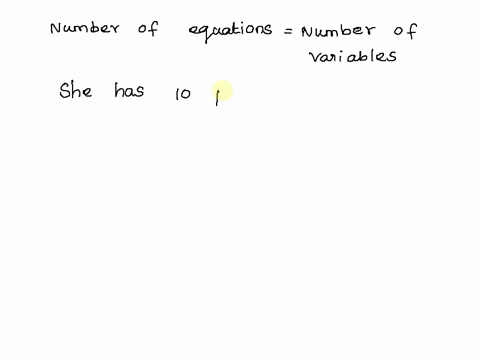 Number of equations = Number of
variables
She has 10